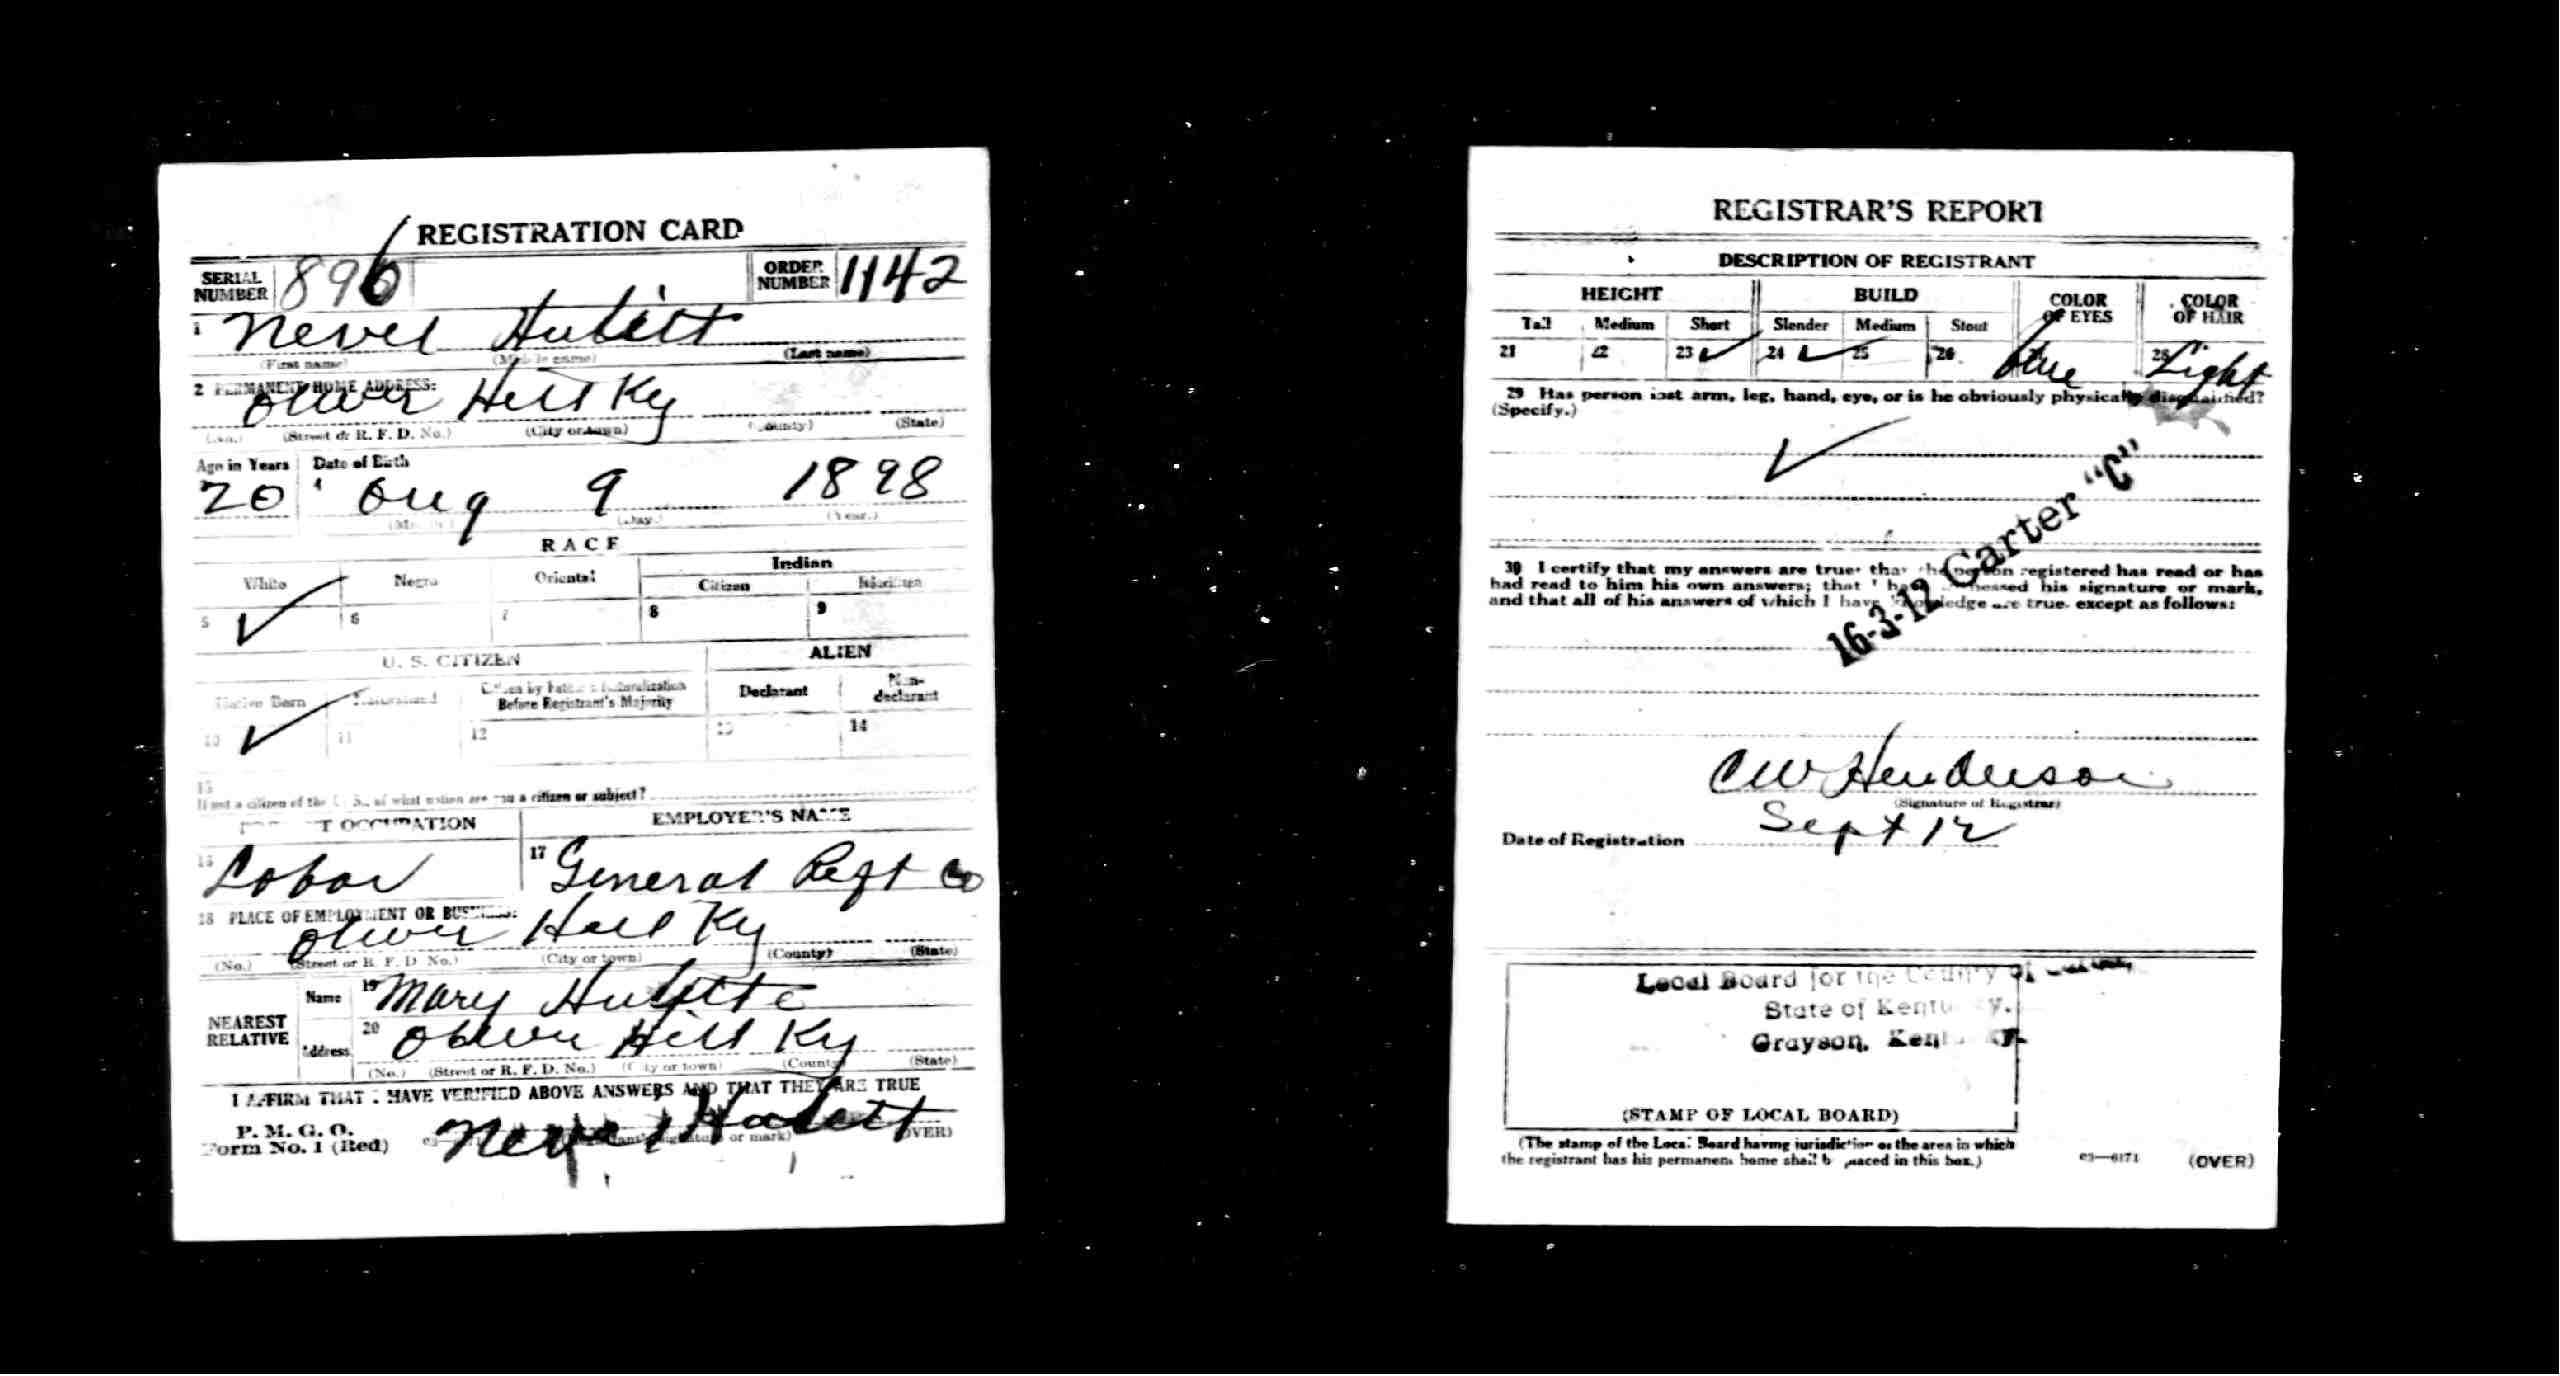 REGISTRATION CARD
SERIAL NUMBER 896 ORDER NUMBER 1142
1 Nevel Hubitt
(First name) (Middle name) (Last name)
2 PERMANENT HOME ADDRESS:
Oliver Hill Ky
(No.) (Street or R. F. D. No.) (City or town) (County) (State)
Age in Years Date of Birth
20 4 Oug 9 1898
(Month.) (Day.) (Year.)
RACE
White Negro Oriental Indian
Citizen Noncitizen
5 ✓ 6 7 8 9
U. S. CITIZEN ALIEN
Native Born Naturalized Citizen by Father's Naturalization Before Registrant's Majority Declarant Non-declarant
10 ✓ 11 12 13 14
15
If not a citizen of the U. S., of what nation are you a citizen or subject?
PRESENT OCCUPATION EMPLOYER'S NAME
16 Labor 17 General Reft Co
18 PLACE OF EMPLOYMENT OR BUSINESS:
Oliver Hill Ky
(No.) (Street or R. F. D. No.) (City or town) (County) (State)
NEAREST RELATIVE
Name 19 Mary Hubitte
Address 20 Oliver Hill Ky
(No.) (Street or R. F. D. No.) (City or town) (County) (State)
I AFFIRM THAT I HAVE VERIFIED ABOVE ANSWERS AND THAT THEY ARE TRUE
P. M. G. O.
Form No. 1 (Red) Nevel Hubitt (OVER)
REGISTRAR'S REPORT
DESCRIPTION OF REGISTRANT
HEIGHT BUILD COLOR OF EYES COLOR OF HAIR
Tall Medium Short Slender Medium Stout
21 22 23 ✓ 24 ✓ 25 26 blue 28 Light
29 Has person lost arm, leg, hand, eye, or is he obviously physically disqualified?
(Specify.)
✓
30 I certify that my answers are true; that the person registered has read or has
had read to him his own answers; that I have witnessed his signature or mark,
and that all of his answers of which I have knowledge are true, except as follows:
16-3-12 Carter "C"
CW Henderson
(Signature of Registrar)
Date of Registration Sept 12
Local Board for the County of
State of Kentucky.
Grayson, Kentucky.
(STAMP OF LOCAL BOARD)
(The stamp of the Local Board having jurisdiction of the area in which
the registrant has his permanent home shall be placed in this box.)
03—6171 (OVER)